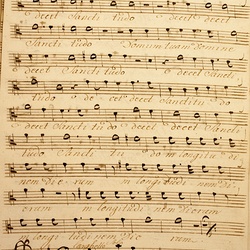 decet Sancti tudo decet
Sancti tudo Domum tuam Domine
decet Sancti tudo decet Sancti
tudo decet decet Sanctitu do
decet Sancti tu do decet Sancti
tudo Sancti tu do in longitu di
nem die rum in longitudi nem di
erum longitudi nem dierum
longi tudi nem die rum